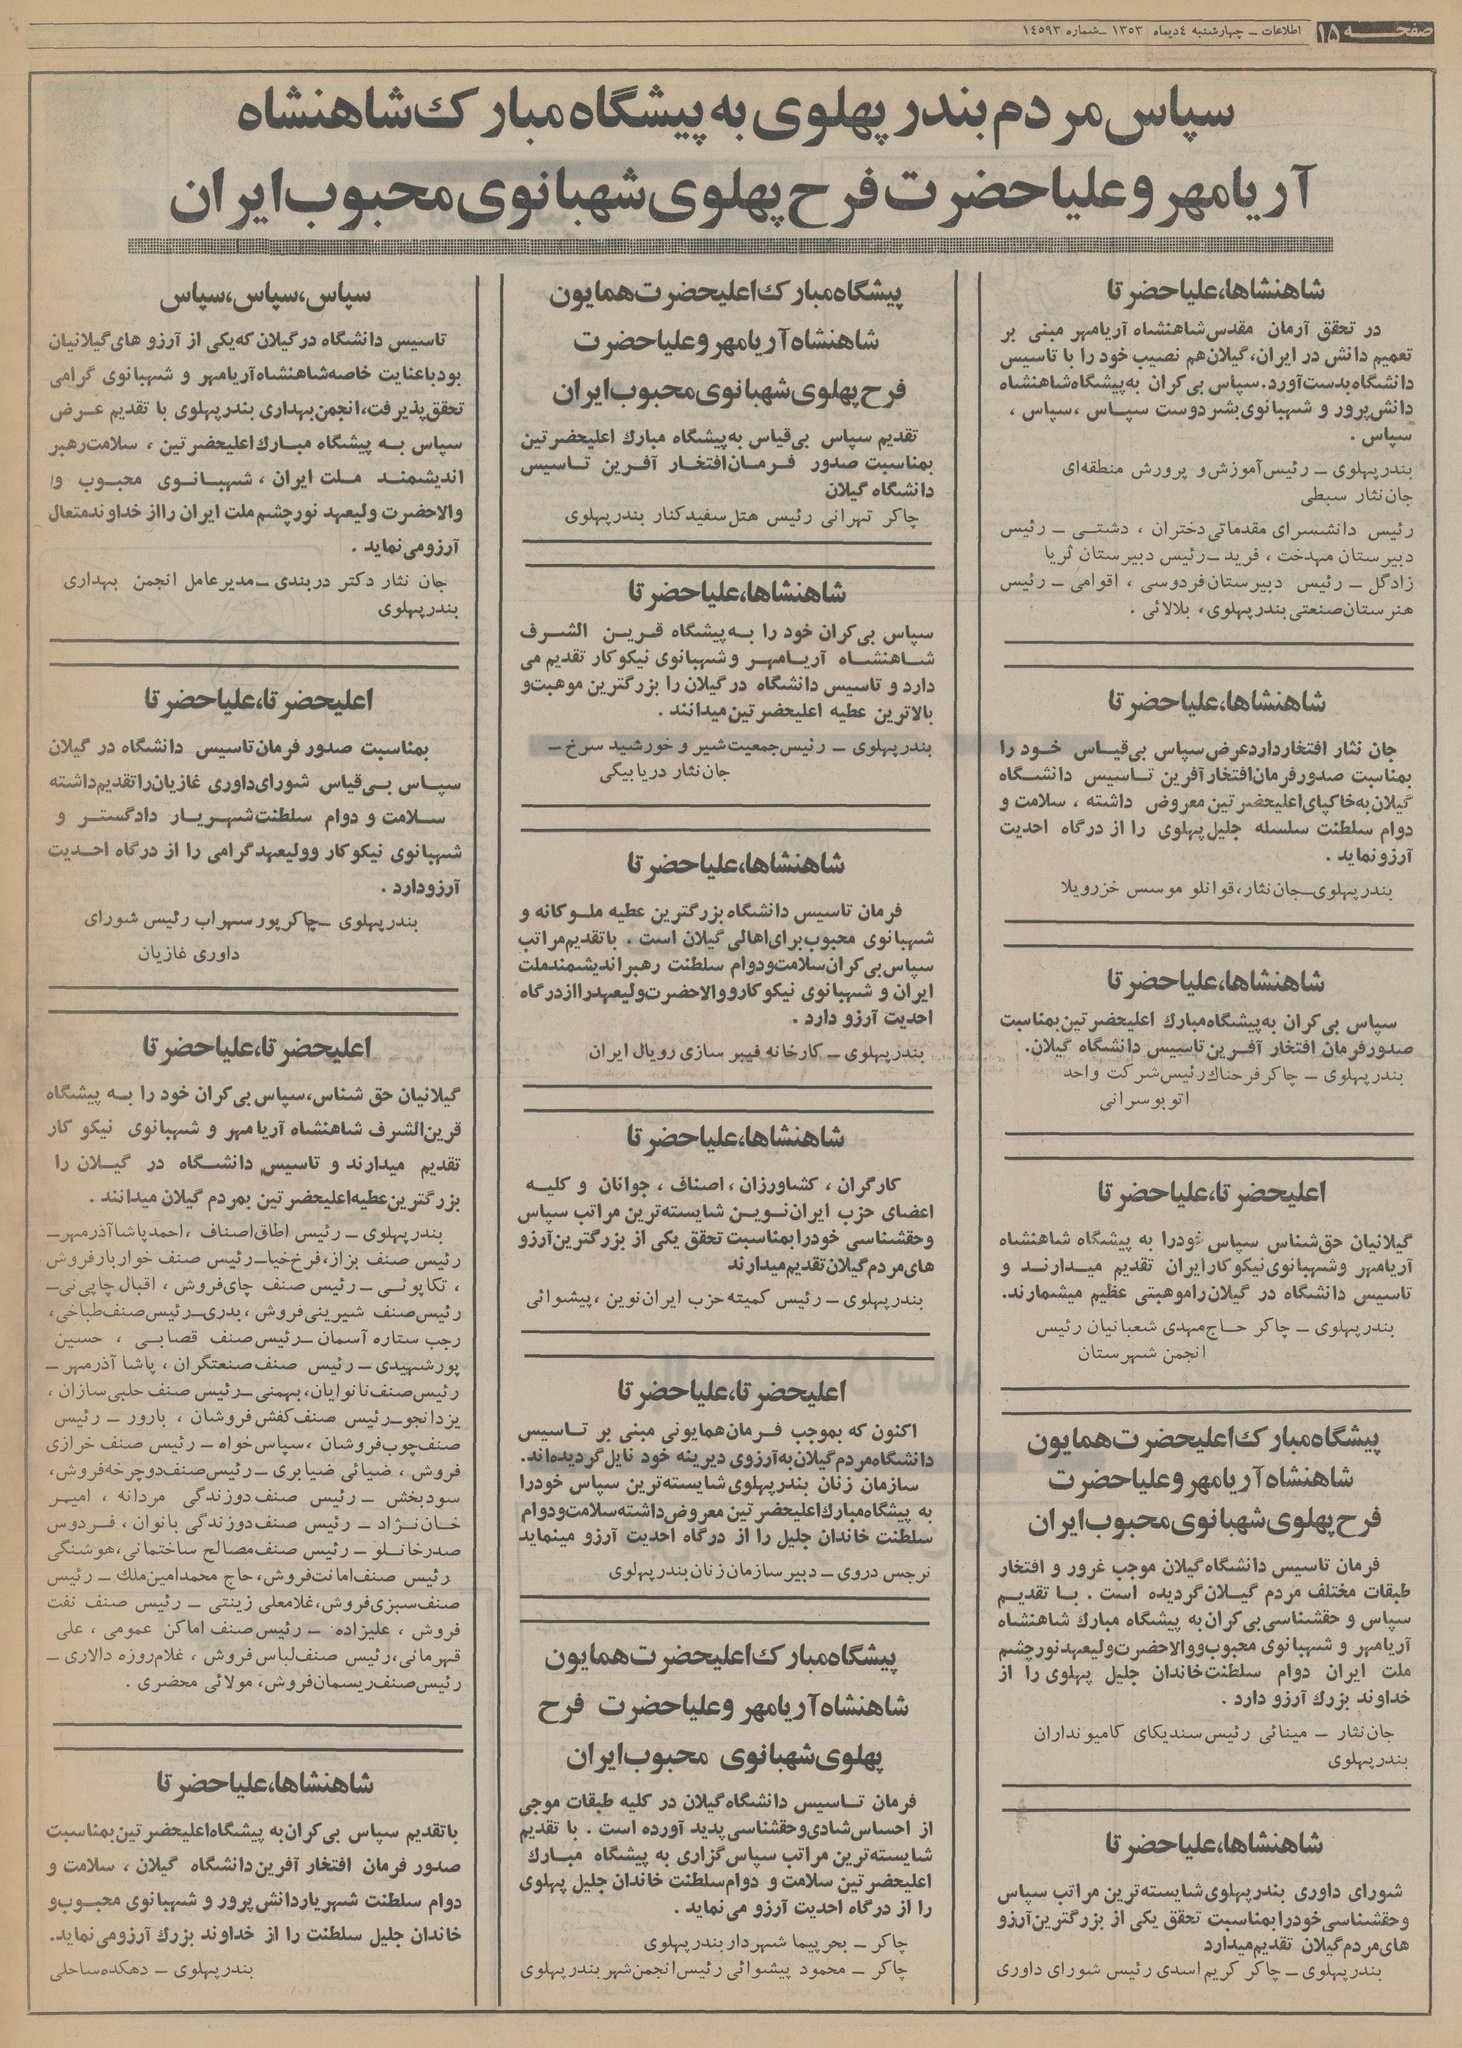 صفحه ۱۵
اطلاعات - چهارشنبه ٤ دیماه ۱۳۵۳ - شماره ۱٤۵۹۳
سپاس مردم بندر پهلوی به پیشگاه مبارک شاهنشاه
آریامهر و علیاحضرت فرح پهلوی شهبانوی محبوب ایران
شاهنشاها، علیاحضرتا
در تحقق آرمان مقدس شاهنشاه آریامهر مبنی بر
تعمیم دانش در ایران، گیلان هم نصیب خود را با تاسیس
دانشگاه بدست آورد. سپاس بی کران به پیشگاه شاهنشاه
دانش پرور و شهبانوی بشر دوست سپاس ، سپاس ،
سپاس .
بندر پهلوی - رئیس آموزش و پرورش منطقه ای
جان نثار سبطی
رئیس دانشسرای مقدماتی دختران ، دشتی - رئیس
دبیرستان مهدخت ، فرید - رئیس دبیرستان ثریا
زادگل - رئیس دبیرستان فردوسی ، اقوامی - رئیس
هنرستان صنعتی بندر پهلوی، بلالائی .
شاهنشاها، علیاحضرتا
جان نثار افتخار دارد عرض سپاس بی قیاس خود را
بمناسبت صدور فرمان افتخار آفرین تاسیس دانشگاه
گیلان به خاکپای اعلیحضرتین معروض داشته ، سلامت و
دوام سلطنت سلسله جلیل پهلوی را از درگاه احدیت
آرزو نماید .
بندر پهلوی - جان نثار، قوانلو موسس خزرویلا
شاهنشاها، علیاحضرتا
سپاس بی کران به پیشگاه مبارک اعلیحضرتین بمناسبت
صدور فرمان افتخار آفرین تاسیس دانشگاه گیلان.
بندر پهلوی - چاکر فرحناک رئیس شرکت واحد
اتوبوسرانی
اعلیحضرتا، علیاحضرتا
گیلانیان حق شناس سپاس خود را به پیشگاه شاهنشاه
آریامهر و شهبانوی نیکوکار ایران تقدیم میدارند و
تاسیس دانشگاه در گیلان را موهبتی عظیم میشمارند.
بندر پهلوی - چاکر حاج مهدی شعبانیان رئیس
انجمن شهرستان
پیشگاه مبارک اعلیحضرت همایون
شاهنشاه آریامهر و علیاحضرت
فرح پهلوی شهبانوی محبوب ایران
فرمان تاسیس دانشگاه گیلان موجب غرور و افتخار
طبقات مختلف مردم گیلان گردیده است . با تقدیم
سپاس و حقشناسی بی کران به پیشگاه مبارک شاهنشاه
آریامهر و شهبانوی محبوب و والاحضرت ولیعهد نورچشم
ملت ایران دوام سلطنت خاندان جلیل پهلوی را از
خداوند بزرگ آرزو دارد .
جان نثار - مینائی رئیس سندیکای کامیونداران
بندر پهلوی
شاهنشاها، علیاحضرتا
شورای داوری بندر پهلوی شایسته ترین مراتب سپاس
و حقشناسی خود را بمناسبت تحقق یکی از بزرگترین آرزو
های مردم گیلان تقدیم میدارد
بندر پهلوی - چاکر کریم اسدی رئیس شورای داوری
پیشگاه مبارک اعلیحضرت همایون
شاهنشاه آریامهر و علیاحضرت
فرح پهلوی شهبانوی محبوب ایران
تقدیم سپاس بی قیاس به پیشگاه مبارک اعلیحضرتین
بمناسبت صدور فرمان افتخار آفرین تاسیس
دانشگاه گیلان
چاکر تهرانی رئیس هتل سفید کنار بندر پهلوی
شاهنشاها، علیاحضرتا
سپاس بی کران خود را به پیشگاه قرین الشرف
شاهنشاه آریامهر و شهبانوی نیکوکار تقدیم می
دارد و تاسیس دانشگاه در گیلان را بزرگترین موهبت و
بالاترین عطیه اعلیحضرتین میدانند .
بندر پهلوی - رئیس جمعیت شیر و خورشید سرخ -
جان نثار دریابیگی
شاهنشاها، علیاحضرتا
فرمان تاسیس دانشگاه بزرگترین عطیه ملوکانه و
شهبانوی محبوب برای اهالی گیلان است . با تقدیم مراتب
سپاس بی کران سلامت و دوام سلطنت رهبر اندیشمند ملت
ایران و شهبانوی نیکوکار و والاحضرت ولیعهد را از درگاه
احدیت آرزو دارد .
بندر پهلوی - کارخانه فیبر سازی رویال ایران
شاهنشاها، علیاحضرتا
کارگران ، کشاورزان ، اصناف ، جوانان و کلیه
اعضای حزب ایران نوین شایسته ترین مراتب سپاس
و حقشناسی خود را بمناسبت تحقق یکی از بزرگترین آرزو
های مردم گیلان تقدیم میدارند
بندر پهلوی - رئیس کمیته حزب ایران نوین ، پیشوائی
اعلیحضرتا، علیاحضرتا
اکنون که بموجب فرمان همایونی مبنی بر تاسیس
دانشگاه مردم گیلان به آرزوی دیرینه خود نایل گردیده اند.
سازمان زنان بندر پهلوی شایسته ترین سپاس خود را
به پیشگاه مبارک اعلیحضرتین معروض داشته سلامت و دوام
سلطنت خاندان جلیل را از درگاه احدیت آرزو مینماید
نرجس دروی - دبیر سازمان زنان بندر پهلوی
پیشگاه مبارک اعلیحضرت همایون
شاهنشاه آریامهر و علیاحضرت فرح
پهلوی شهبانوی محبوب ایران
فرمان تاسیس دانشگاه گیلان در کلیه طبقات موجی
از احساس شادی و حقشناسی پدید آورده است . با تقدیم
شایسته ترین مراتب سپاس گزاری به پیشگاه مبارک
اعلیحضرتین سلامت و دوام سلطنت خاندان جلیل پهلوی
را از درگاه احدیت آرزو می نماید .
چاکر - بحر پیما شهردار بندر پهلوی
چاکر - محمود پیشوائی رئیس انجمن شهر بندر پهلوی
سپاس، سپاس، سپاس
تاسیس دانشگاه در گیلان که یکی از آرزو های گیلانیان
بود با عنایت خاصه شاهنشاه آریامهر و شهبانوی گرامی
تحقق پذیرفت، انجمن بهداری بندر پهلوی با تقدیم عرض
سپاس به پیشگاه مبارک اعلیحضرتین ، سلامت رهبر
اندیشمند ملت ایران ، شهبانوی محبوب و
والاحضرت ولیعهد نورچشم ملت ایران را از خداوند متعال
آرزو می نماید .
جان نثار دکتر دربندی - مدیر عامل انجمن بهداری
بندر پهلوی
اعلیحضرتا، علیاحضرتا
بمناسبت صدور فرمان تاسیس دانشگاه در گیلان
سپاس بی قیاس شورای داوری غازیان را تقدیم داشته
سلامت و دوام سلطنت شهریار دادگستر و
شهبانوی نیکوکار و ولیعهد گرامی را از درگاه احدیت
آرزو دارد .
بندر پهلوی - چاکر پور سهراب رئیس شورای
داوری غازیان
اعلیحضرتا، علیاحضرتا
گیلانیان حق شناس، سپاس بی کران خود را به پیشگاه
قرین الشرف شاهنشاه آریا مهر و شهبانوی نیکو کار
تقدیم میدارند و تاسیس دانشگاه در گیلان را
بزرگترین عطیه اعلیحضرتین بمردم گیلان میدانند .
بندر پهلوی - رئیس اطاق اصناف ، احمد پاشا آذرمهر -
رئیس صنف بزاز، فرخ خیا - رئیس صنف خواربار فروش
، تکاپوئی - رئیس صنف چای فروش ، اقبال چاپی نی -
رئیس صنف شیرینی فروش ، بدری - رئیس صنف طباخی ،
رجب ستاره آسمان - رئیس صنف قصابی ، حسین
پورشهیدی - رئیس صنف صنعتگران ، پاشا آذرمهر -
رئیس صنف نانوایان، بهمنی - رئیس صنف حلبی سازان ،
یزدانجو - رئیس صنف کفش فروشان ، بارور - رئیس
صنف چوب فروشان ، سپاس خواه - رئیس صنف خرازی
فروش ، ضیائی ضیابری - رئیس صنف دوچرخه فروش،
سودبخش - رئیس صنف دوزندگی مردانه ، امیر
خان نژاد - رئیس صنف دوزندگی بانوان ، فردوس
صدرخانلو - رئیس صنف مصالح ساختمانی، هوشنگی
رئیس صنف امانت فروش، حاج محمدامین ملک - رئیس
صنف سبزی فروش، غلامعلی زینتی - رئیس صنف نفت
فروش ، علیزاده - رئیس صنف اماکن عمومی ، علی
قهرمانی، رئیس صنف لباس فروش ، غلام روزه دالاری -
رئیس صنف ریسمان فروش، مولائی محضری .
شاهنشاها، علیاحضرتا
با تقدیم سپاس بی کران به پیشگاه اعلیحضرتین بمناسبت
صدور فرمان افتخار آفرین دانشگاه گیلان ، سلامت و
دوام سلطنت شهریار دانش پرور و شهبانوی محبوب و
خاندان جلیل سلطنت را از خداوند بزرگ آرزو می نماید.
بندر پهلوی - دهکده ساحلی